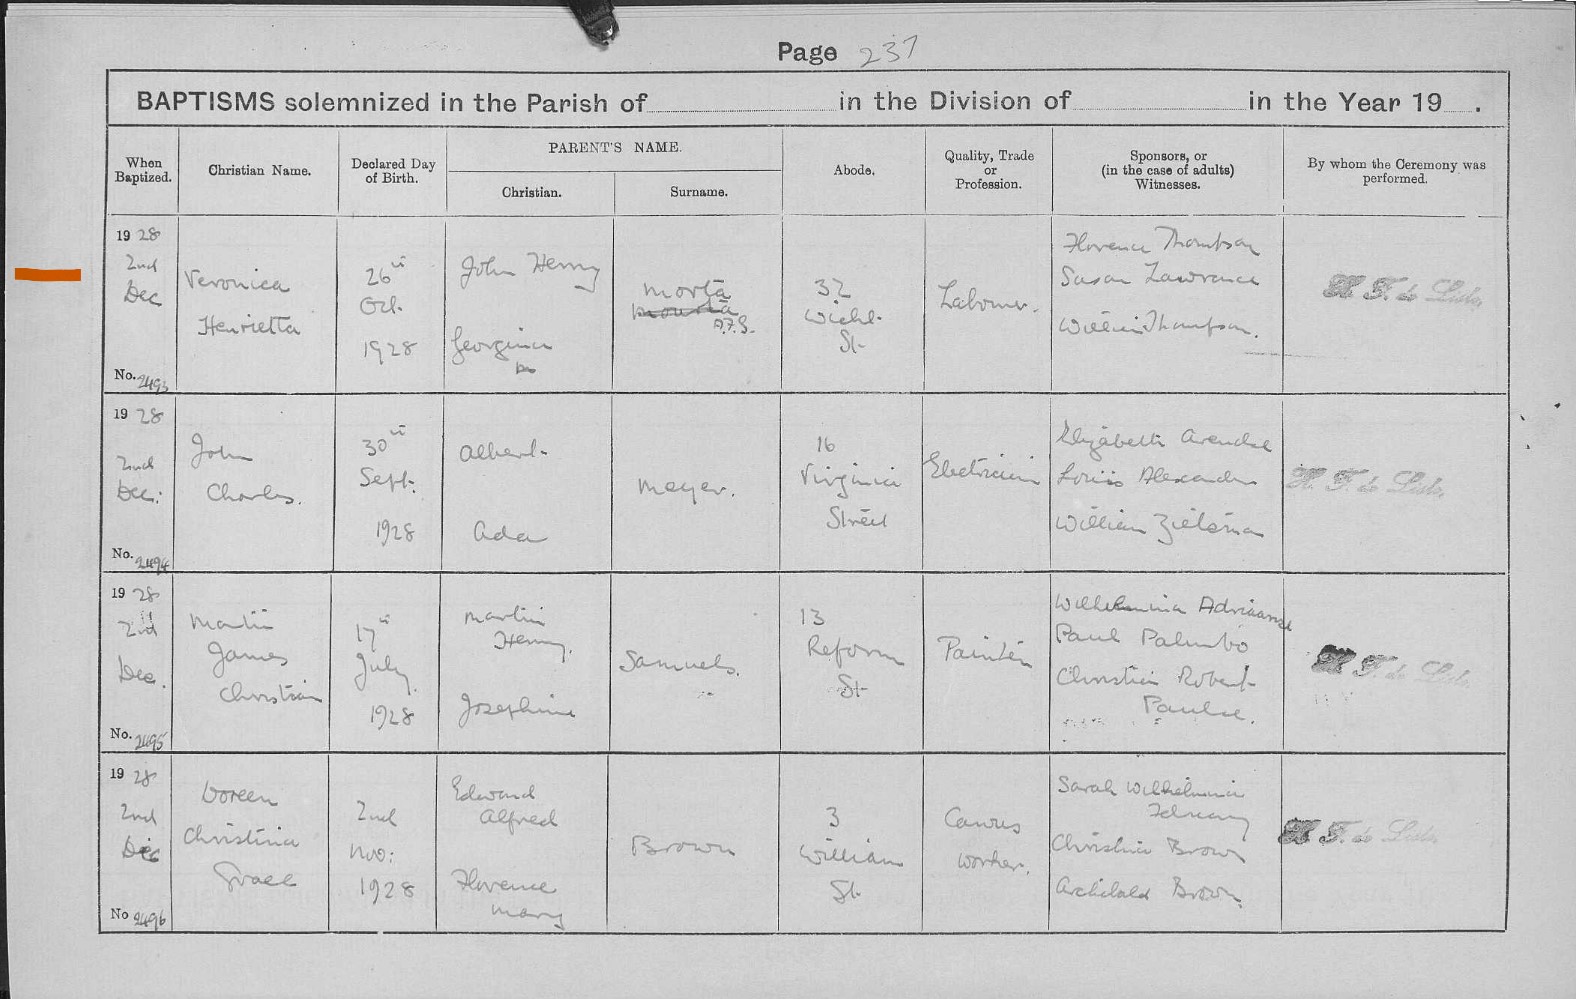 Page 237
BAPTISMS solemnized in the Parish of in the Division of in the Year 19 .
When Baptized.
Christian Name.
Declared Day of Birth.
PARENT'S NAME.
Christian.
Surname.
Abode.
Quality, Trade or Profession.
Sponsors, or (in the case of adults) Witnesses.
By whom the Ceremony was performed.
1928
2nd
Dec
No. 2493
Veronica
Henrietta
26th
Oct.
1928
John Henry
Georgina
Morta
32
St.
Labourer.
Florence Thompson
Susan Lawrance
William Thompson.
H. F. de Lisle.
1928
2nd
Dec:
No. 2494
John
Charles.
30th
Sept.
1928
Albert.
Ada
Meyer.
16
Virginia
Street
Electrician
Elizabeth Arendse
Louisa Alexander
William Zieleman
H. F. de Lisle.
1928
2nd
Dec.
No. 2495
Martin
James
Christian
17th
July
1928
Martin
Henry.
Josephine
Samuels.
13
Reform
St.
Painter
Wilhelmina Adriaanse
Paul Palumbo
Christian Robert
Paulse.
H. F. de Lisle.
1928
2nd
Dec
No 2496
Doreen
Christina
Grace
2nd
Nov:
1928
Edward
Alfred
Florence
Mary
Brown
3
William
St.
Canvas
worker.
Sarah Wilhelmina
February
Christina Brown
Archibald Brown.
H. F. de Lisle.